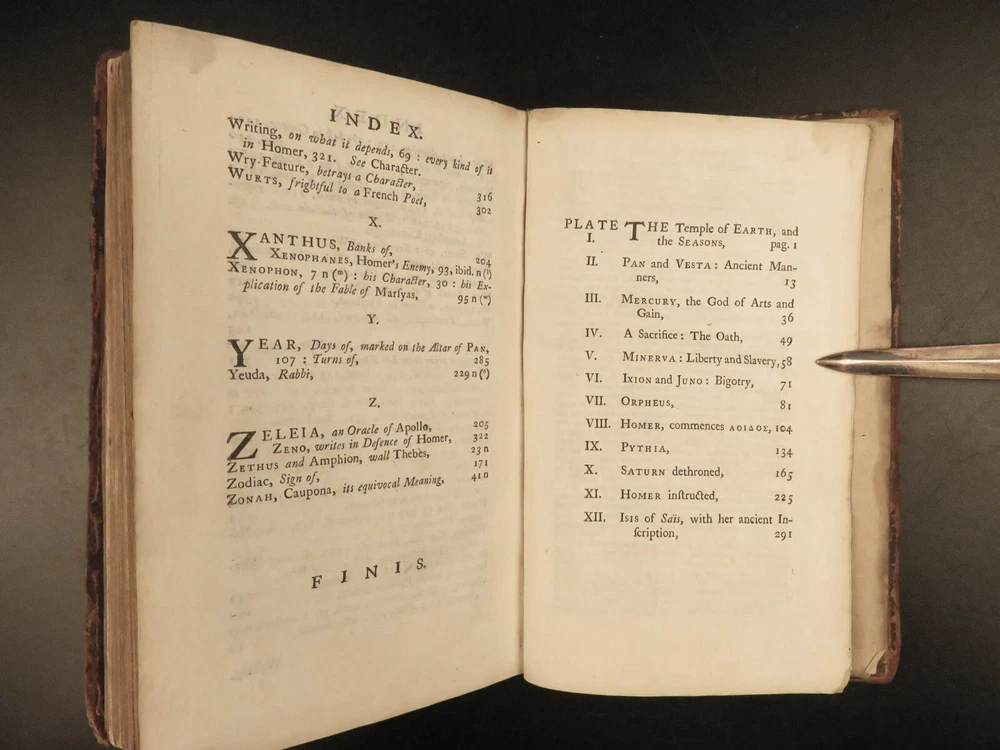 INDEX.
Writing, on what it depends, 69 : every kind of it
in Homer, 321. See Character.
Wry-Feature, betrays a Character, 316
WURTS, frightful to a French Poet, 302
X.
XANTHUS, Banks of, 204
XENOPHANES, Homer's Enemy, 93, ibid. n (¹)
XENOPHON, 7 n (ᵐ) : his Character, 30 : his Ex-
plication of the Fable of Marsyas, 95 n (ʷ)
Y.
YEAR, Days of, marked on the Altar of PAN,
107 : Turns of, 285
Yeuda, Rabbi, 229 n (°)
Z.
ZELEIA, an Oracle of Apollo, 205
ZENO, writes in Defence of Homer, 322
ZETHUS and Amphion, wall Thebes, 23 n
Zodiac, Sign of, 171
ZONAH, Caupona, its equivocal Meaning, 41 n
FINIS.
PLATE THE Temple of EARTH, and
I. the SEASONS, pag. 1
II. PAN and VESTA : Ancient Man-
ners, 13
III. MERCURY, the God of Arts and
Gain, 36
IV. A Sacrifice : The Oath, 49
V. MINERVA : Liberty and Slavery, 58
VI. IXION and JUNO : Bigotry, 71
VII. ORPHEUS, 81
VIII. HOMER, commences ΑΟΙΔΟΣ, 104
IX. PYTHIA, 134
X. SATURN dethroned, 165
XI. HOMER instructed, 225
XII. ISIS of Saïs, with her ancient In-
scription, 291